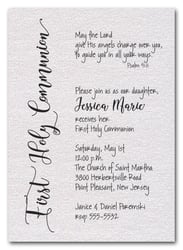 First Holy Communion
May the Lord
give His angels charge over you,
to guide you in all your ways.
Psalm 91:11
Please join us as our daughter,
Jessica Marie
receives her
First Holy Communion
Saturday, May 1st
12:00 p.m.
The Church of Saint Martha
3800 Herbertsville Road
Point Pleasant, New Jersey
Janice & Daniel Paremski
rsvp 555-5532